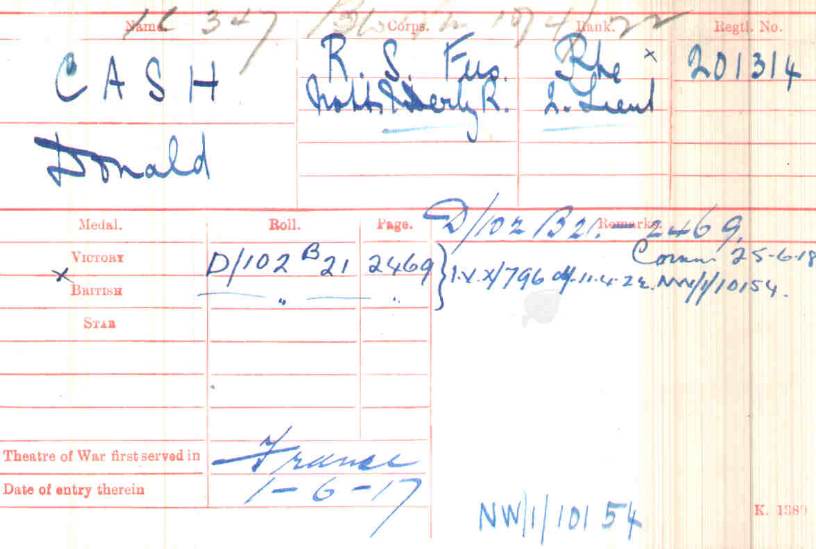 Name. Corps. Rank. Regtl. No.
347
CASH R. S. Fus. Pte x 201314
Notts & Derby R. 2. Lieut
Donald
Medal. Roll. Page. Remarks.
D/102 B21. 2469.
Comm 25-6-18
VICTORY D/102 B 21 2469
x
BRITISH " "
} 1.V.X/796 d/-11-4-22. NW/1/10154.
STAR
Theatre of War first served in France
Date of entry therein 1-6-17
NW/1/10154
K. 1380